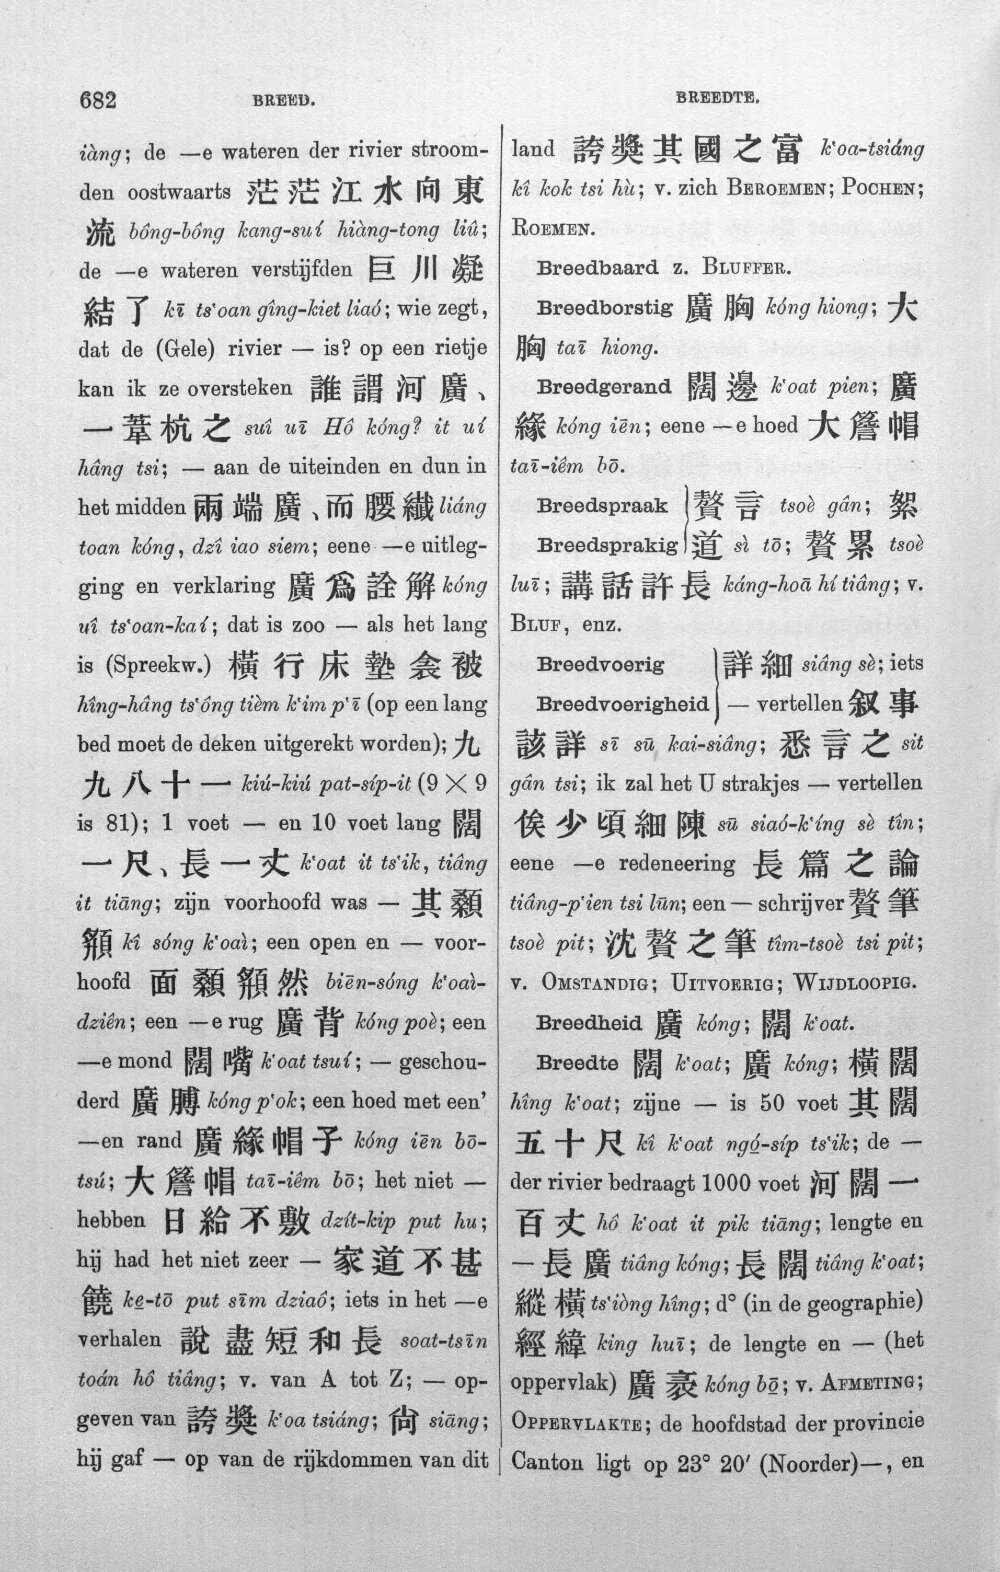 682
BREED.
BREEDTE.
iàng; de —e wateren der rivier stroom-
den oostwaarts 茫茫江水向東
流 bông-bông kang-suí hiàng-tong liû;
de —e wateren verstijfden 巨川凝
結了 kī ts‘oan gîng-kiet liaó; wie zegt,
dat de (Gele) rivier — is? op een rietje
kan ik ze oversteken 誰謂河廣、
一葦杭之 suî uī Hô kóng? it uí
hâng tsi; — aan de uiteinden en dun in
het midden 兩端廣、而腰纖 liáng
toan kóng, dzî iao siem; eene —e uitleg-
ging en verklaring 廣爲詮解 kóng
uî ts‘oan-kaí; dat is zoo — als het lang
is (Spreekw.) 橫行床墊衾被
hîng-hâng ts‘ông tièm k‘im p‘ī (op een lang
bed moet de deken uitgerekt worden); 九
九八十一 kiú-kiú pat-síp-it (9 × 9
is 81); 1 voet — en 10 voet lang 闊
一尺、長一丈 k‘oat it ts‘ik, tiâng
it tiāng; zijn voorhoofd was — 其顙
䫥 kî sóng k‘oaì; een open en — voor-
hoofd 面顙䫥然 biēn-sóng k‘oaì-
dziên; een —e rug 廣背 kóng poè; een
—e mond 闊嘴 k‘oat tsuí; — geschou-
derd 廣膊 kóng p‘ok; een hoed met een’
—en rand 廣緣帽子 kóng iēn bō-
tsú; 大簷帽 taī-iêm bō; het niet —
hebben 日給不敷 dzít-kip put hu;
hij had het niet zeer — 家道不甚
饒 ke-tō put sīm dziaô; iets in het —e
verhalen 說盡短和長 soat-tsīn
toán hô tiâng; v. van A tot Z; — op-
geven van 誇獎 k‘oa tsiáng; 尙 siāng;
hij gaf — op van de rijkdommen van dit
land 誇獎其國之富 k‘oa-tsiáng
kî kok tsi hù; v. zich BEROEMEN; POCHEN;
ROEMEN.
Breedbaard z. BLUFFER.
Breedborstig 廣胸 kóng hiong; 大
胸 taī hiong.
Breedgerand 闊邊 k‘oat pien; 廣
緣 kóng iēn; eene —e hoed 大簷帽
taī-iêm bō.
Breedspraak 贅言 tsoè gân; 絮
Breedsprakig 道 sì tō; 贅累 tsoè
luī; 講話許長 káng-hoā hí tiâng; v.
BLUF, enz.
Breedvoerig 詳細 siâng sè; iets
Breedvoerigheid — vertellen 叙事
該詳 sī sū kai-siâng; 悉言之 sit
gân tsi; ik zal het U strakjes — vertellen
俟少頃細陳 sū siaó-k‘íng sè tîn;
eene —e redeneering 長篇之論
tiâng-p‘ien tsi lūn; een — schrijver 贅筆
tsoè pit; 沈贅之筆 tîm-tsoè tsi pit;
v. OMSTANDIG; UITVOERIG; WIJDLOOPIG.
Breedheid 廣 kóng; 闊 k‘oat.
Breedte 闊 k‘oat; 廣 kóng; 橫闊
hîng k‘oat; zijne — is 50 voet 其闊
五十尺 kî k‘oat ngó-síp ts‘ik; de —
der rivier bedraagt 1000 voet 河闊一
百丈 hô k‘oat it pik tiāng; lengte en
— 長廣 tiâng kóng; 長闊 tiâng k‘oat;
縱橫 ts‘iòng hîng; d° (in de geographie)
經緯 king huī; de lengte en — (het
oppervlak) 廣袤 kóng bō; v. AFMETING;
OPPERVLAKTE; de hoofdstad der provincie
Canton ligt op 23° 20′ (Noorder)—, en